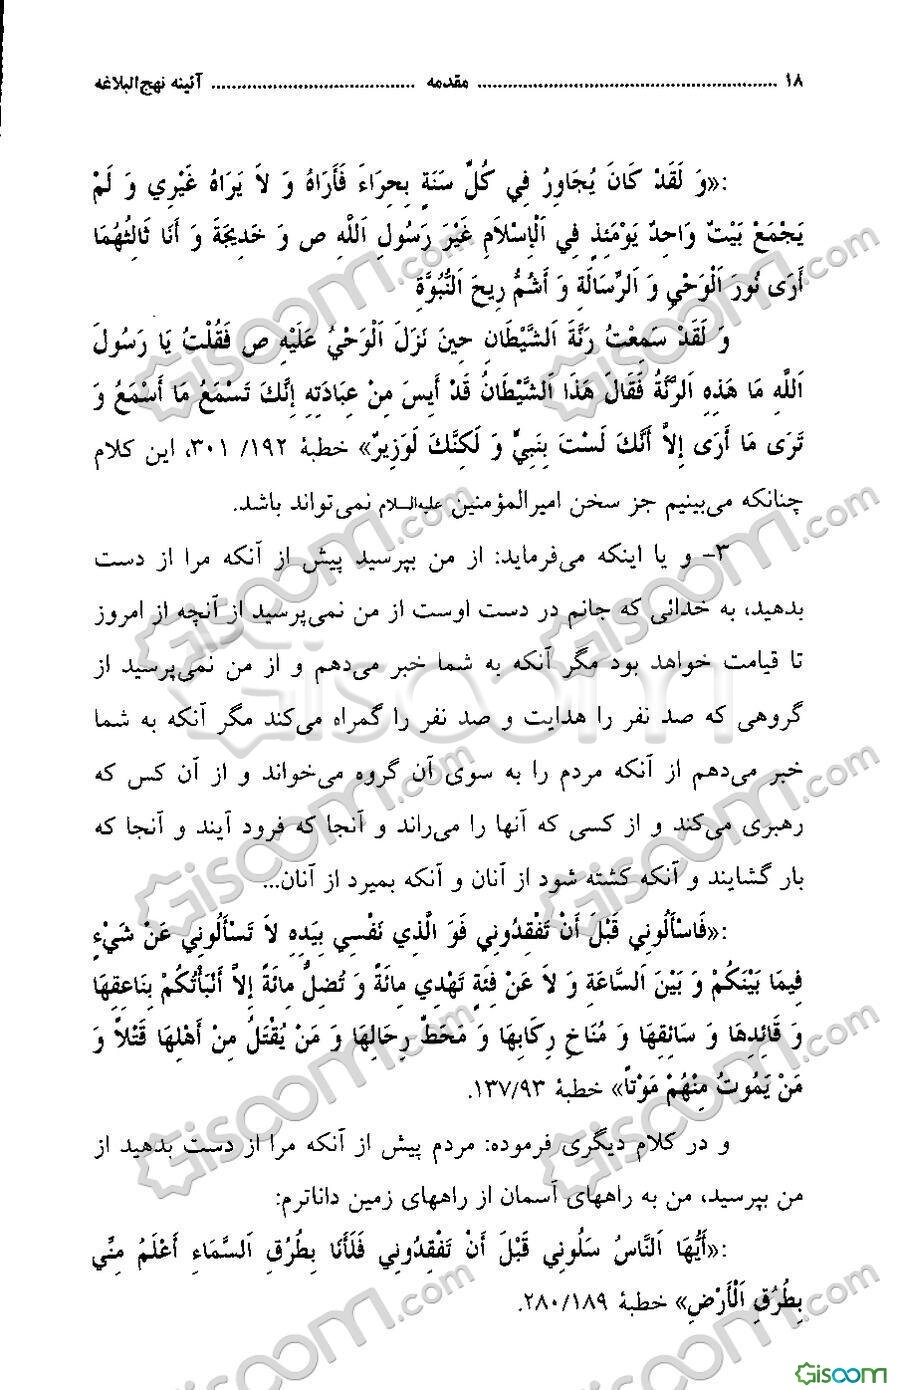 ۱۸ ................................................ مقدمه ................................ آئینه نهج‌البلاغه
:«وَ لَقَدْ كَانَ يُجَاوِرُ فِي كُلِّ سَنَةٍ بِحِرَاءَ فَأَرَاهُ وَ لاَ يَرَاهُ غَيْرِي وَ لَمْ
يَجْمَعْ بَيْتٌ وَاحِدٌ يَوْمَئِذٍ فِي اَلْإِسْلاَمِ غَيْرَ رَسُولِ اَللَّهِ ص وَ خَدِيجَةَ وَ أَنَا ثَالِثُهُمَا
أَرَى نُورَ اَلْوَحْيِ وَ اَلرِّسَالَةِ وَ أَشُمُّ رِيحَ اَلنُّبُوَّةِ
وَ لَقَدْ سَمِعْتُ رَنَّةَ اَلشَّيْطَانِ حِينَ نَزَلَ اَلْوَحْيُ عَلَيْهِ ص فَقُلْتُ يَا رَسُولَ
اَللَّهِ مَا هَذِهِ اَلرَّنَّةُ فَقَالَ هَذَا اَلشَّيْطَانُ قَدْ أَيِسَ مِنْ عِبَادَتِهِ إِنَّكَ تَسْمَعُ مَا أَسْمَعُ وَ
تَرَى مَا أَرَى إِلاَّ أَنَّكَ لَسْتَ بِنَبِيٍّ وَ لَكِنَّكَ لَوَزِيرٌ» خطبهٔ ۱۹۲/ ۳۰۱، این کلام
چنانکه می‌بینیم جز سخن امیرالمؤمنین علیه‌السلام نمی‌تواند باشد.
۳- و یا اینکه می‌فرماید: از من بپرسید پیش از آنکه مرا از دست
بدهید، به خدائی که جانم در دست اوست از من نمی‌پرسید از آنچه از امروز
تا قیامت خواهد بود مگر آنکه به شما خبر می‌دهم و از من نمی‌پرسید از
گروهی که صد نفر را هدایت و صد نفر را گمراه می‌کند مگر آنکه به شما
خبر می‌دهم از آنکه مردم را به سوی آن گروه می‌خواند و از آن کس که
رهبری می‌کند و از کسی که آنها را می‌راند و آنجا که فرود آیند و آنجا که
بار گشایند و آنکه کشته شود از آنان و آنکه بمیرد از آنان...
:«فَاسْأَلُونِي قَبْلَ أَنْ تَفْقِدُونِي فَوَ الَّذِي نَفْسِي بِيَدِهِ لاَ تَسْأَلُونِي عَنْ شَيْءٍ
فِيمَا بَيْنَكُمْ وَ بَيْنَ اَلسَّاعَةِ وَ لاَ عَنْ فِئَةٍ تَهْدِي مِائَةً وَ تُضِلُّ مِائَةً إِلاَّ أَنْبَأْتُكُمْ بِنَاعِقِهَا
وَ قَائِدِهَا وَ سَائِقِهَا وَ مُنَاخِ رِكَابِهَا وَ مَحَطِّ رِحَالِهَا وَ مَنْ يُقْتَلُ مِنْ أَهْلِهَا قَتْلاً وَ
مَنْ يَمُوتُ مِنْهُمْ مَوْتاً» خطبهٔ ۱۳۷/۹۳.
و در کلام دیگری فرموده: مردم پیش از آنکه مرا از دست بدهید از
من بپرسید، من به راههای آسمان از راههای زمین داناترم:
:«أَيُّهَا اَلنَّاسُ سَلُونِي قَبْلَ أَنْ تَفْقِدُونِي فَلَأَنَا بِطُرُقِ اَلسَّمَاءِ أَعْلَمُ مِنِّي
بِطُرُقِ اَلْأَرْضِ» خطبهٔ ۲۸۰/۱۸۹.
Gisoom